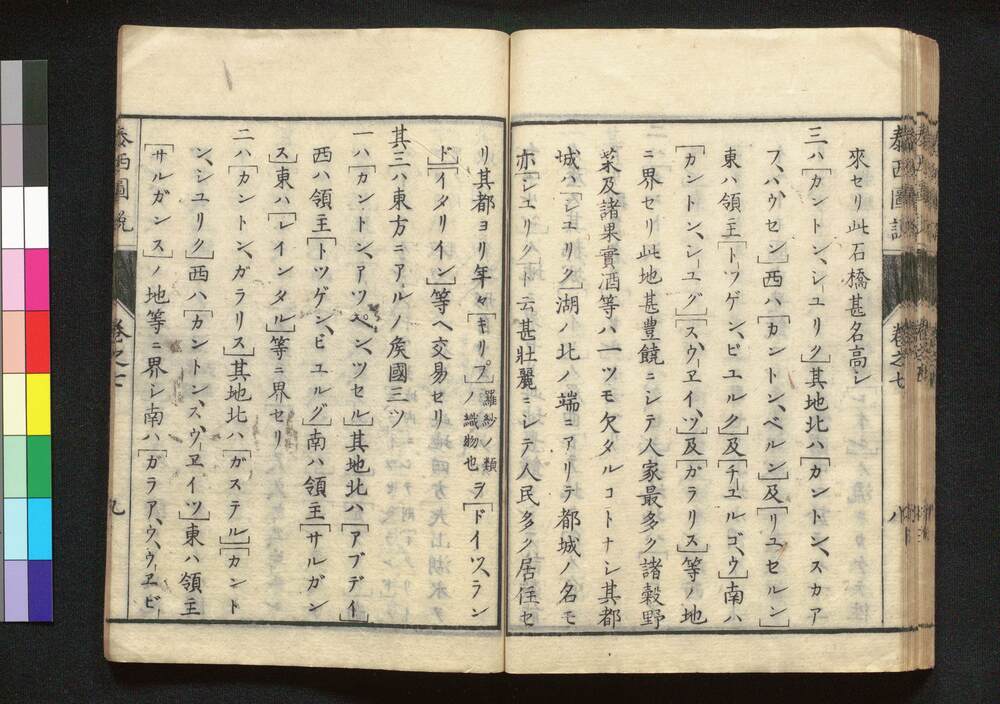 泰西圖說
卷之七
八
來セリ此石橋甚名高シ
三ハ[カントン、シユリク]其地北ハ[カントン、スカア
フ、ハウセン]西ハ[カントン、ベルン]及[リユセルン]
東ハ領主[トツゲン、ビユルク]及[チユルゴ、ウ]南ハ
[カントン、シユグ][スウヱイツ]及[ガラリス]等ノ地
ニ界セリ此地甚豊饒ニシテ人家最多ク諸穀野
菜及諸果實酒等ハ一ツモ欠タルコトナシ其都
城ハ[シユリク]湖ノ北ノ端ニアリテ都城ノ名モ
亦[シユリク]ト云甚壯麗ニシテ人民多ク居住セ
リ其都ヨリ年々[キリプ]羅紗ノ類ノ織物也ヲ[ドイツ、ラン
ド][イタリイン]等ヘ交易セリ
其三ハ東方ニアルノ矦國三ツ
一ハ[カントン、アツペンツセル]其地北ハ[アブデイ]
西ハ領主[トツゲン、ビユルグ]南ハ領主[サルガン
ス]東ハ[レインタル]等ニ界セリ
二ハ[カントン、ガラリス]其地北ハ[ガステル][カント
ン、シユリク]西ハ[カントン、スウヱイツ]東ハ領主
[サルガンス]ノ地等ニ界シ南ハ[ガラアウ、ウヱビ
泰西圖說
卷之七
九